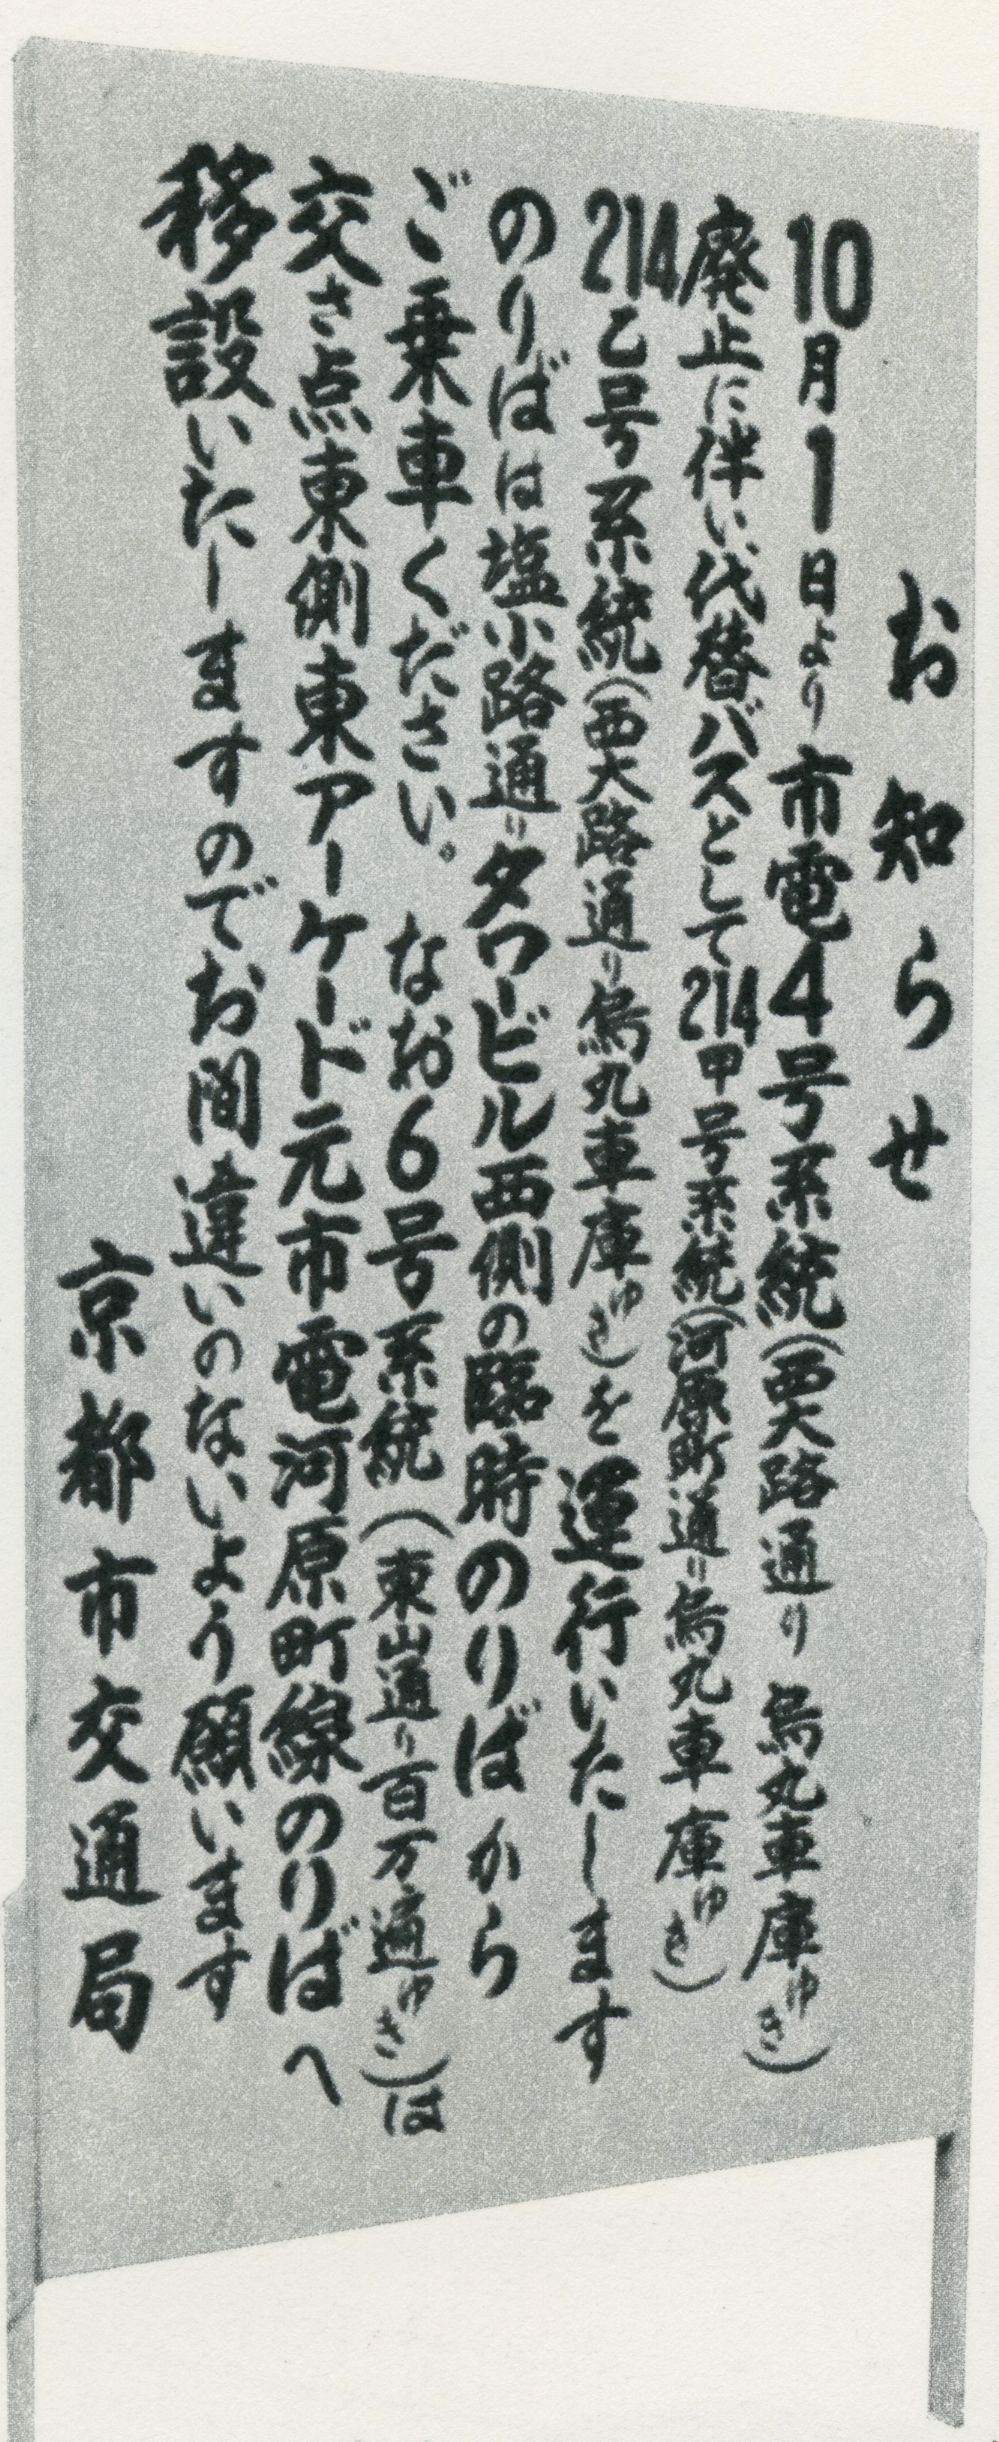 お知らせ
10月1日より市電4号系統(西大路通り烏丸車庫ゆき)
廃止に伴い代替バスとして214甲号系統(河原町通り烏丸車庫ゆき)
214乙号系統(西大路通り烏丸車庫ゆき)を運行いたします
のりばは塩小路通りタワービル西側の臨時のりばから
ご乗車ください。なお6号系統(東山通り百万遍ゆき)は
交さ点東側東アーケード元市電河原町線のりばへ
移設いたしますのでお間違いのないよう願います
京都市交通局